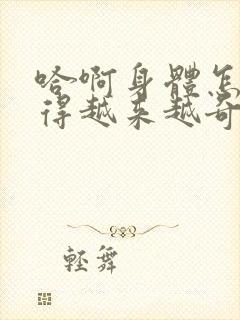 哈啊身體怎
得越来越奇
輕舞